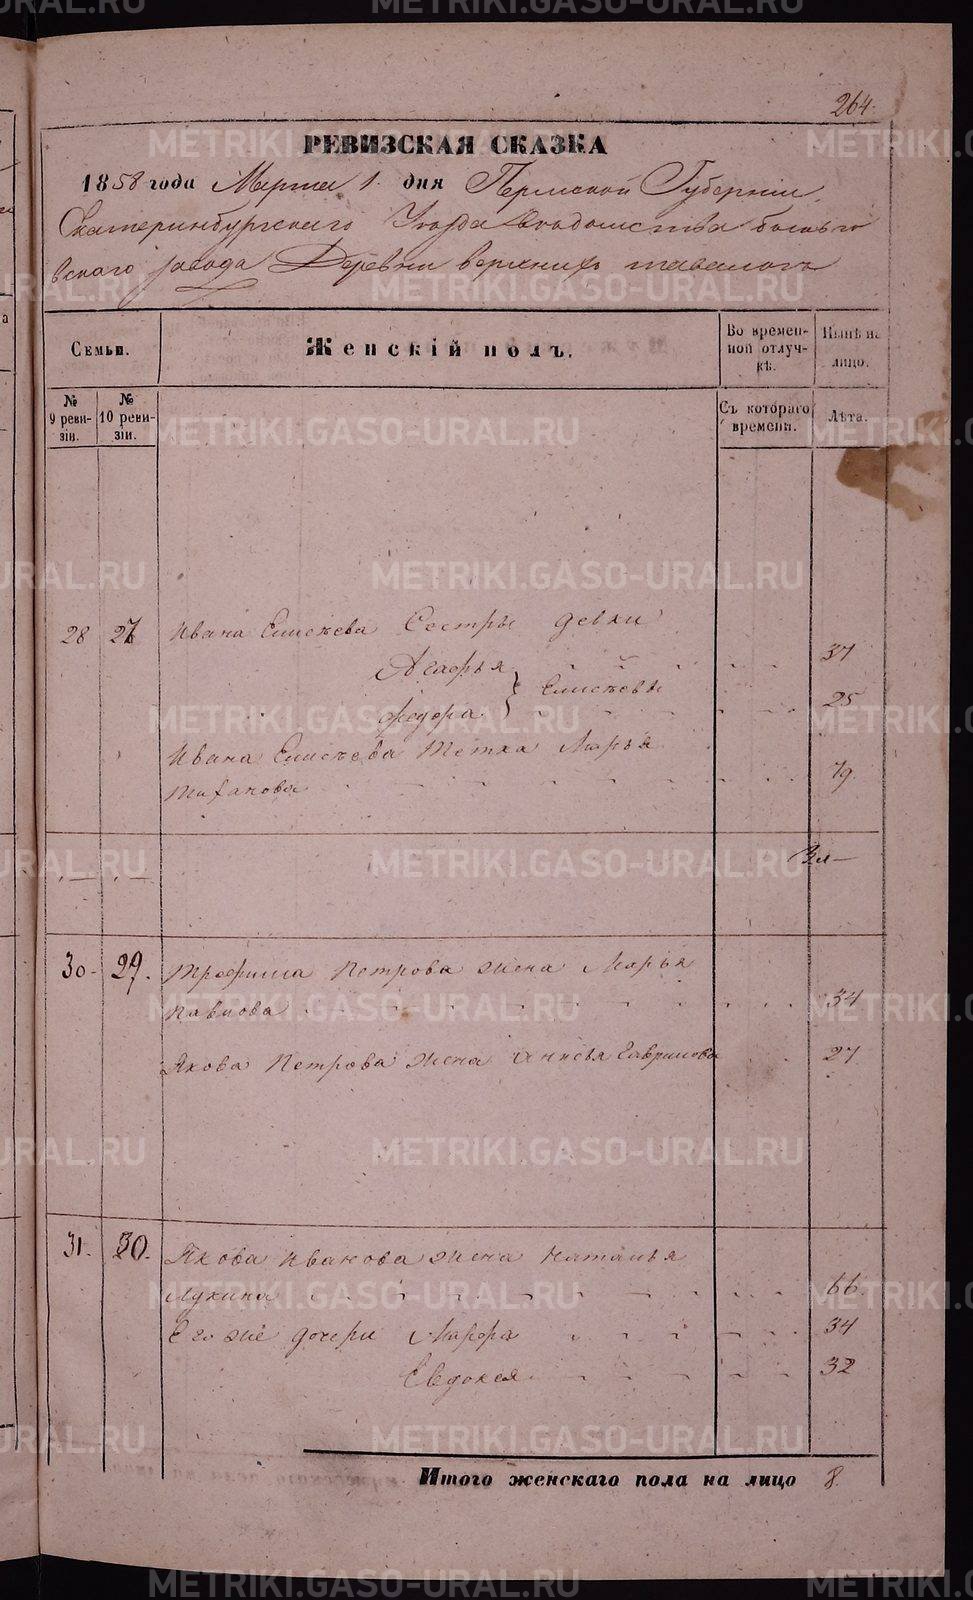 264.
РЕВИЗСКАЯ СКАЗКА
1858 года Марта 1. дня Пермской Губернии,
Екатеринбургскаго Уезда
завода Деревни верхнихъ
Семьи.
Женскій полъ.
Во времен-
ной отлуч-
кѣ.
Нынѣ на
лицо.
№
9 реви-
зіи.
№
10 реви-
зіи.
Съ котораго
времени.
Лѣта.
28 27 Ивана Елисѣева Сестры девки
Агафья 37
Елисѣевы
Федора 25
Ивана Елисѣева тетка Марья 79.
30 29. Трофима Петрова жена Марья
Павлова 34
Якова Петрова жена Анисья Гаврилова 27
31. 30. Якова Иванова жена Наталья
Лукина 66.
Его же дочери Марфа 34
Евдокея 32
Итого женскаго пола на лицо 8.
METRIKI.GASO-URAL.RU